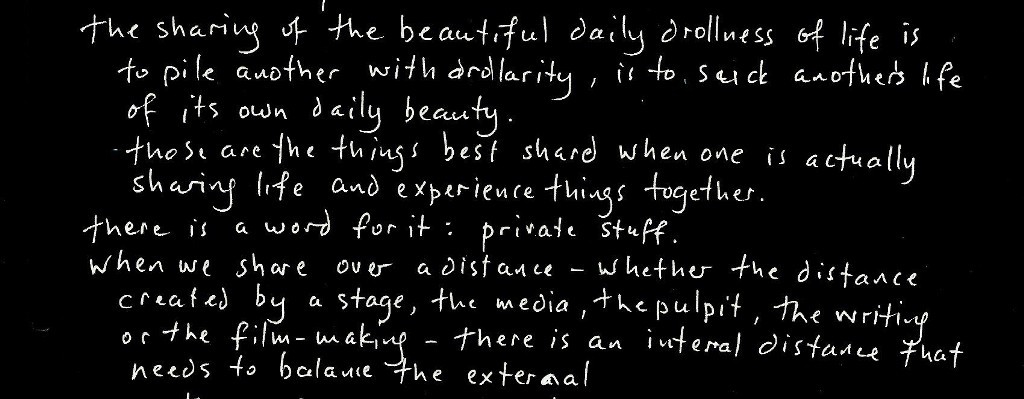 the sharing of the beautiful daily drollness of life is
to pile another with drollarity, is to suck another's life
of its own daily beauty.
those are the things best shard when one is actually
sharing life and experience things together.
there is a word for it: private stuff.
when we share over a distance – whether the distance
created by a stage, the media, the pulpit, the writing
or the film-making – there is an interal distance that
needs to balance the external